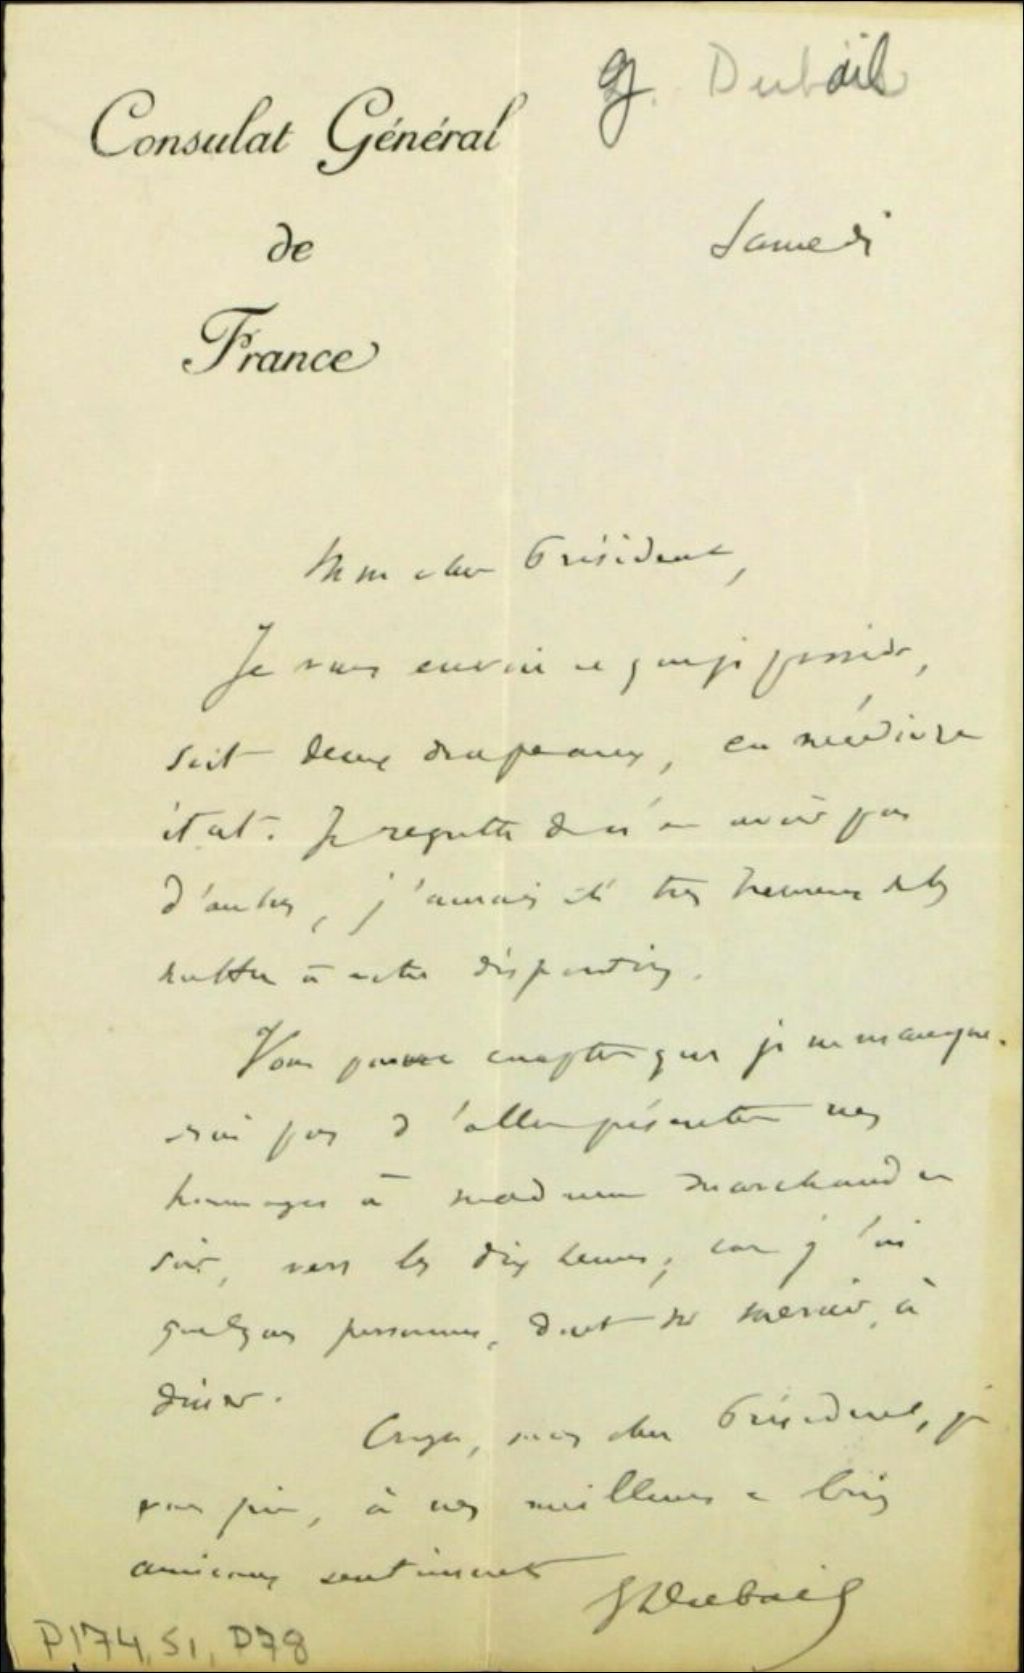 G. Dubail
Consulat Général
de
France
Samedi
Mon cher Président,
Je vous envoie ce que je possède,
soit deux drapeaux, en médiocre
état. Je regrette de n'en avoir pas
d'autres, j'aurais été très heureux de les
mettre à votre disposition.
Vous pouvez compter que je ne manque-
rai pas d'aller présenter mes
hommages à madame Marchand ce
soir, vers les dix heures; car j'ai
quelques personnes, dont Mercier, à
diner.
Croyez, mon cher Président, je
vous prie, à mes meilleurs e bien
amicaux sentiments
GDubail
P174, S1, D78